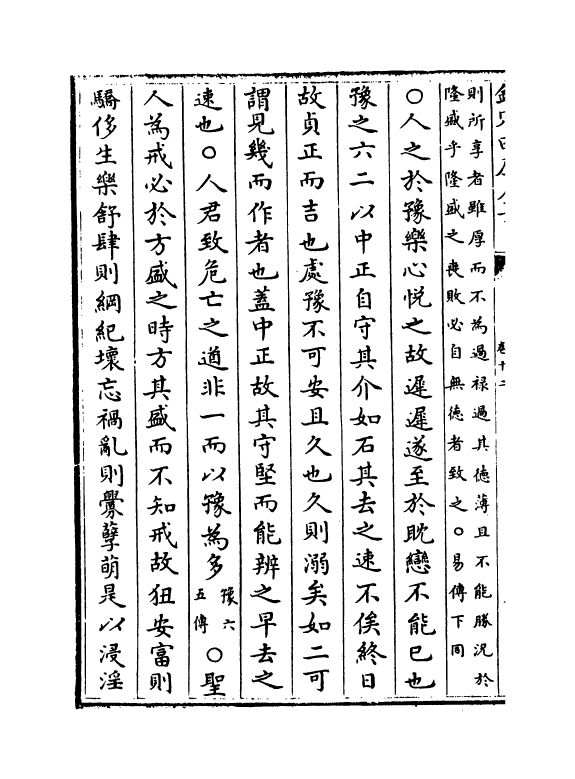 欽定四庫全書
卷十二
則所享者雖厚而不為過禄過其德薄且不能勝況於
隆盛乎隆盛之喪敗必自無德者致之○易傳下同
○人之於豫樂心悦之故遲遲遂至於耽戀不能已也
豫之六二以中正自守其介如石其去之速不俟終日
故貞正而吉也處豫不可安且久也久則溺矣如二可
謂見幾而作者也蓋中正故其守堅而能辨之早去之
速也○人君致危亡之道非一而以豫為多豫六五傳○聖
人為戒必於方盛之時方其盛而不知戒故狃安富則
驕侈生樂舒肆則綱紀壞忘禍亂則釁孽萌是以浸淫